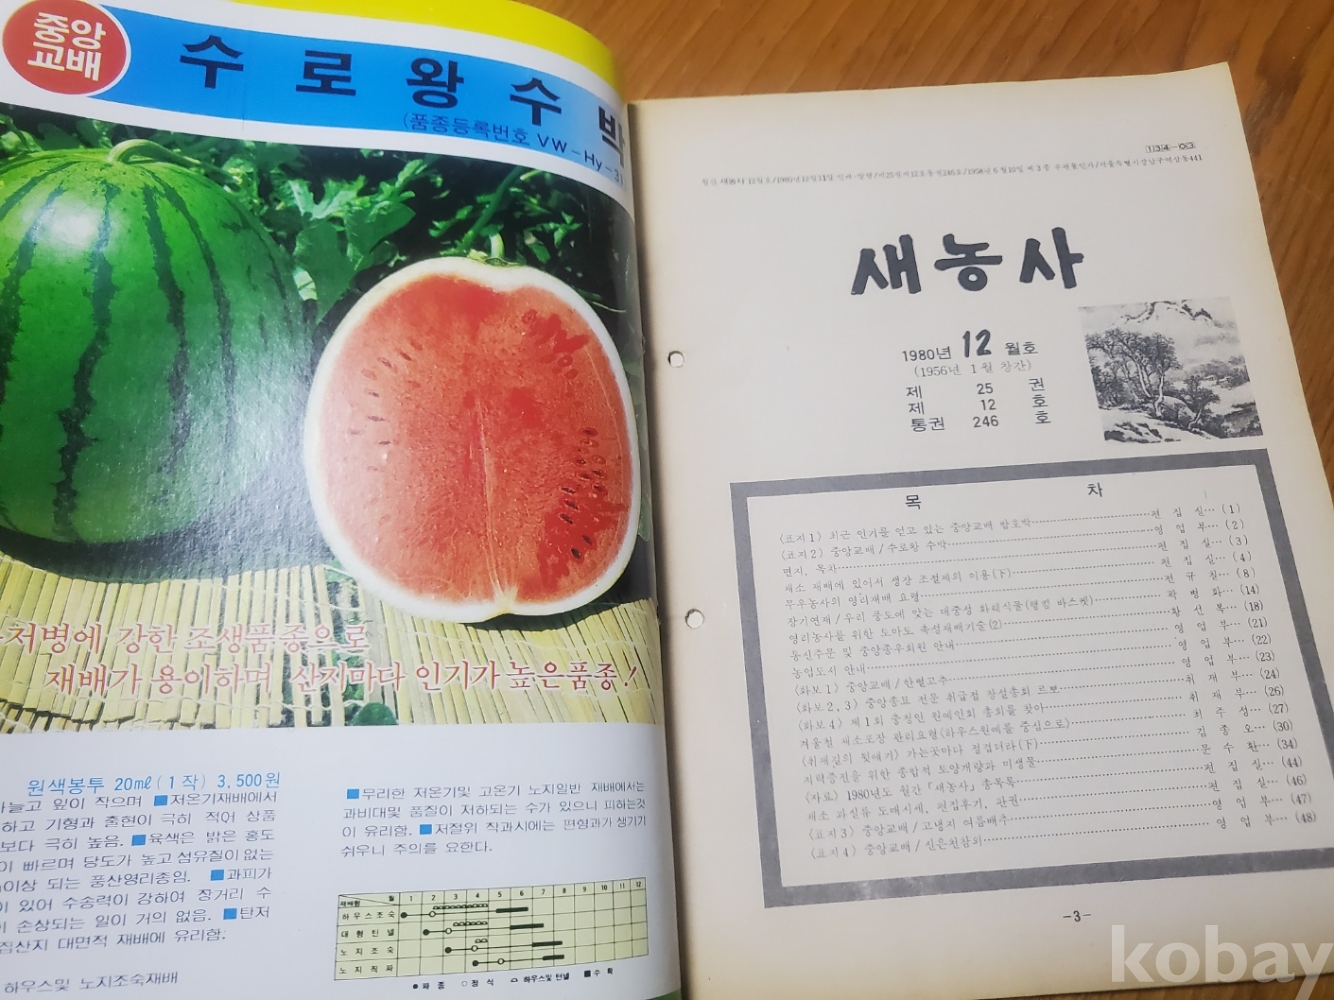 중앙
교배
수로왕수박
(품종등록번호 VW-Hy-31
저병에 강한 조생품종으로
재배가 용이하며 산지마다 인기가 높은품종!
원색봉투 20㎖(1작) 3,500원
가늘고 잎이 작으며 ■저온기재배에서
하고 기형과 출현이 극히 적어 상품
보다 극히 높음. ■육색은 밝은 홍도
이 빠르며 당도가 높고 섬유질이 없는
이상 되는 풍산영리종임. ■과피가
이 있어 수송력이 강하여 장거리 수
손상되는 일이 거의 없음. ■탄저
집산지 대면적 재배에 유리함.
하우스및 노지조숙재배
■무리한 저온기및 고온기 노지일반 재배에서는
과비대및 품질이 저하되는 수가 있으니 피하는것
이 유리함. ■저절위 착과시에는 편형과가 생기기
쉬우니 주의를 요한다.
재배형 월 1 2 3 4 5 6 7 8 9 10 11 12
하우스조숙
대형턴넬
노지조숙
노지직파
●파종 ○정식 하우스및 턴넬 ■수확
134-03
월간 새농사 12월호/1980년 12월 11일 인쇄·발행/제25권제12호통권246호/1958년 6월 10일 제3종 우편물인가/서울특별시강남구역삼동441
새농사
1980년 12 월호
(1956년 1월 창간)
제 25 권
제 12 호
통권 246 호
목 차
〈표지1〉 최근 인기를 얻고 있는 중앙교배 맘호박 편집실 (1)
〈표지2〉 중앙교배/수로왕 수박 영업부 (2)
면지, 목차 편집실 (3)
채소 재배에 있어서 생장 조절제의 이용(下) 편집실 (4)
무우농사의 영리재배 요령 전규칠 (8)
장기연재/우리 풍토에 맞는 대중성 화훼식물(행깅 바스켓) 곽병화 (14)
영리농사를 위한 도마도 촉성재배기술(2) 황선복 (18)
통신주문 및 중앙종우회원 안내 영업부 (21)
농업도서 안내 영업부 (22)
〈화보1〉 중앙교배/한별고추 영업부 (23)
〈화보2, 3〉 중앙종묘 전문 취급점 상설총회 르뽀 취재부 (24)
〈화보4〉 제1회 충청인 원예인회 총회를 찾아 취재부 (26)
겨울철 채소포장 관리요령(하우스원예를 중심으로) 최주성 (27)
〈취재길의 뒷얘기〉 가는곳마다 정겹더라(下) 김종오 (30)
지력증진을 위한 종합적 토양개량과 미생물 문수환 (34)
〈자료〉 1980년도 월간 「새농사」 총목록 편집실 (44)
채소 과실류 도매시세, 편집후기, 판권 편집실 (46)
〈표지3〉 중앙교배/고냉지 여름배추 영업부 (47)
〈표지4〉 중앙교배/신은천참외 영업부 (48)
-3-
kobay